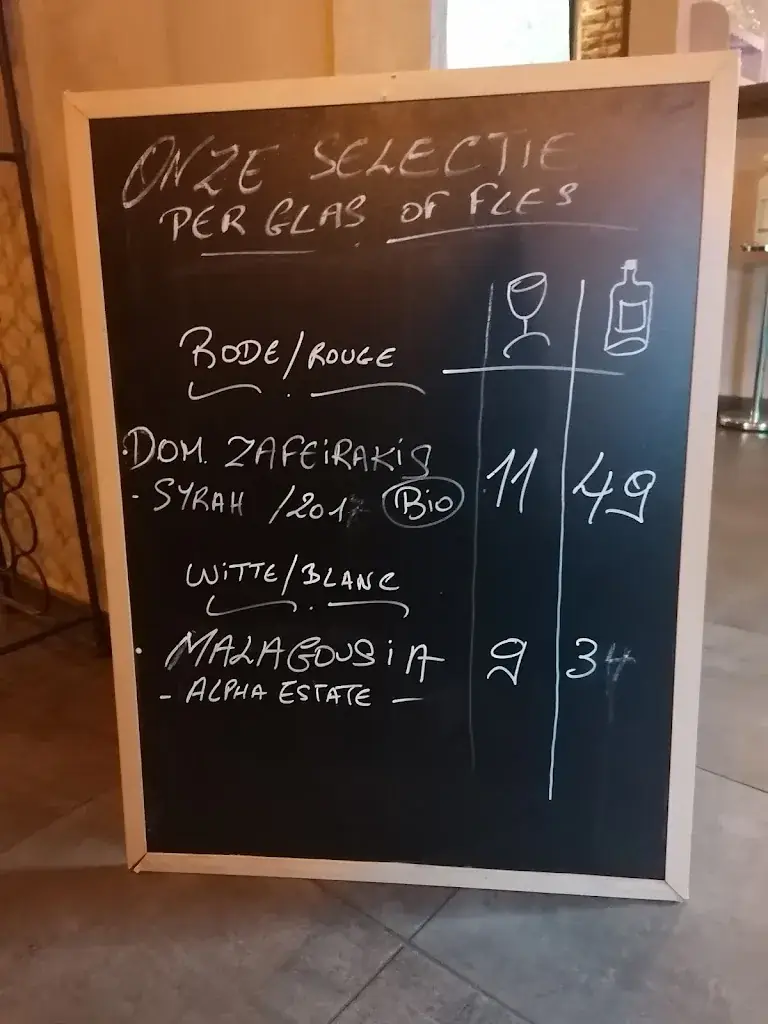 ONZE SELECTIE
PER GLAS OF FLES
RODE/ROUGE
• DOM. ZAFEIRAKIS 11 49
- SYRAH /2017 Bio
WITTE/BLANC
• MALAGOUSIA 9 34
- ALPHA ESTATE -